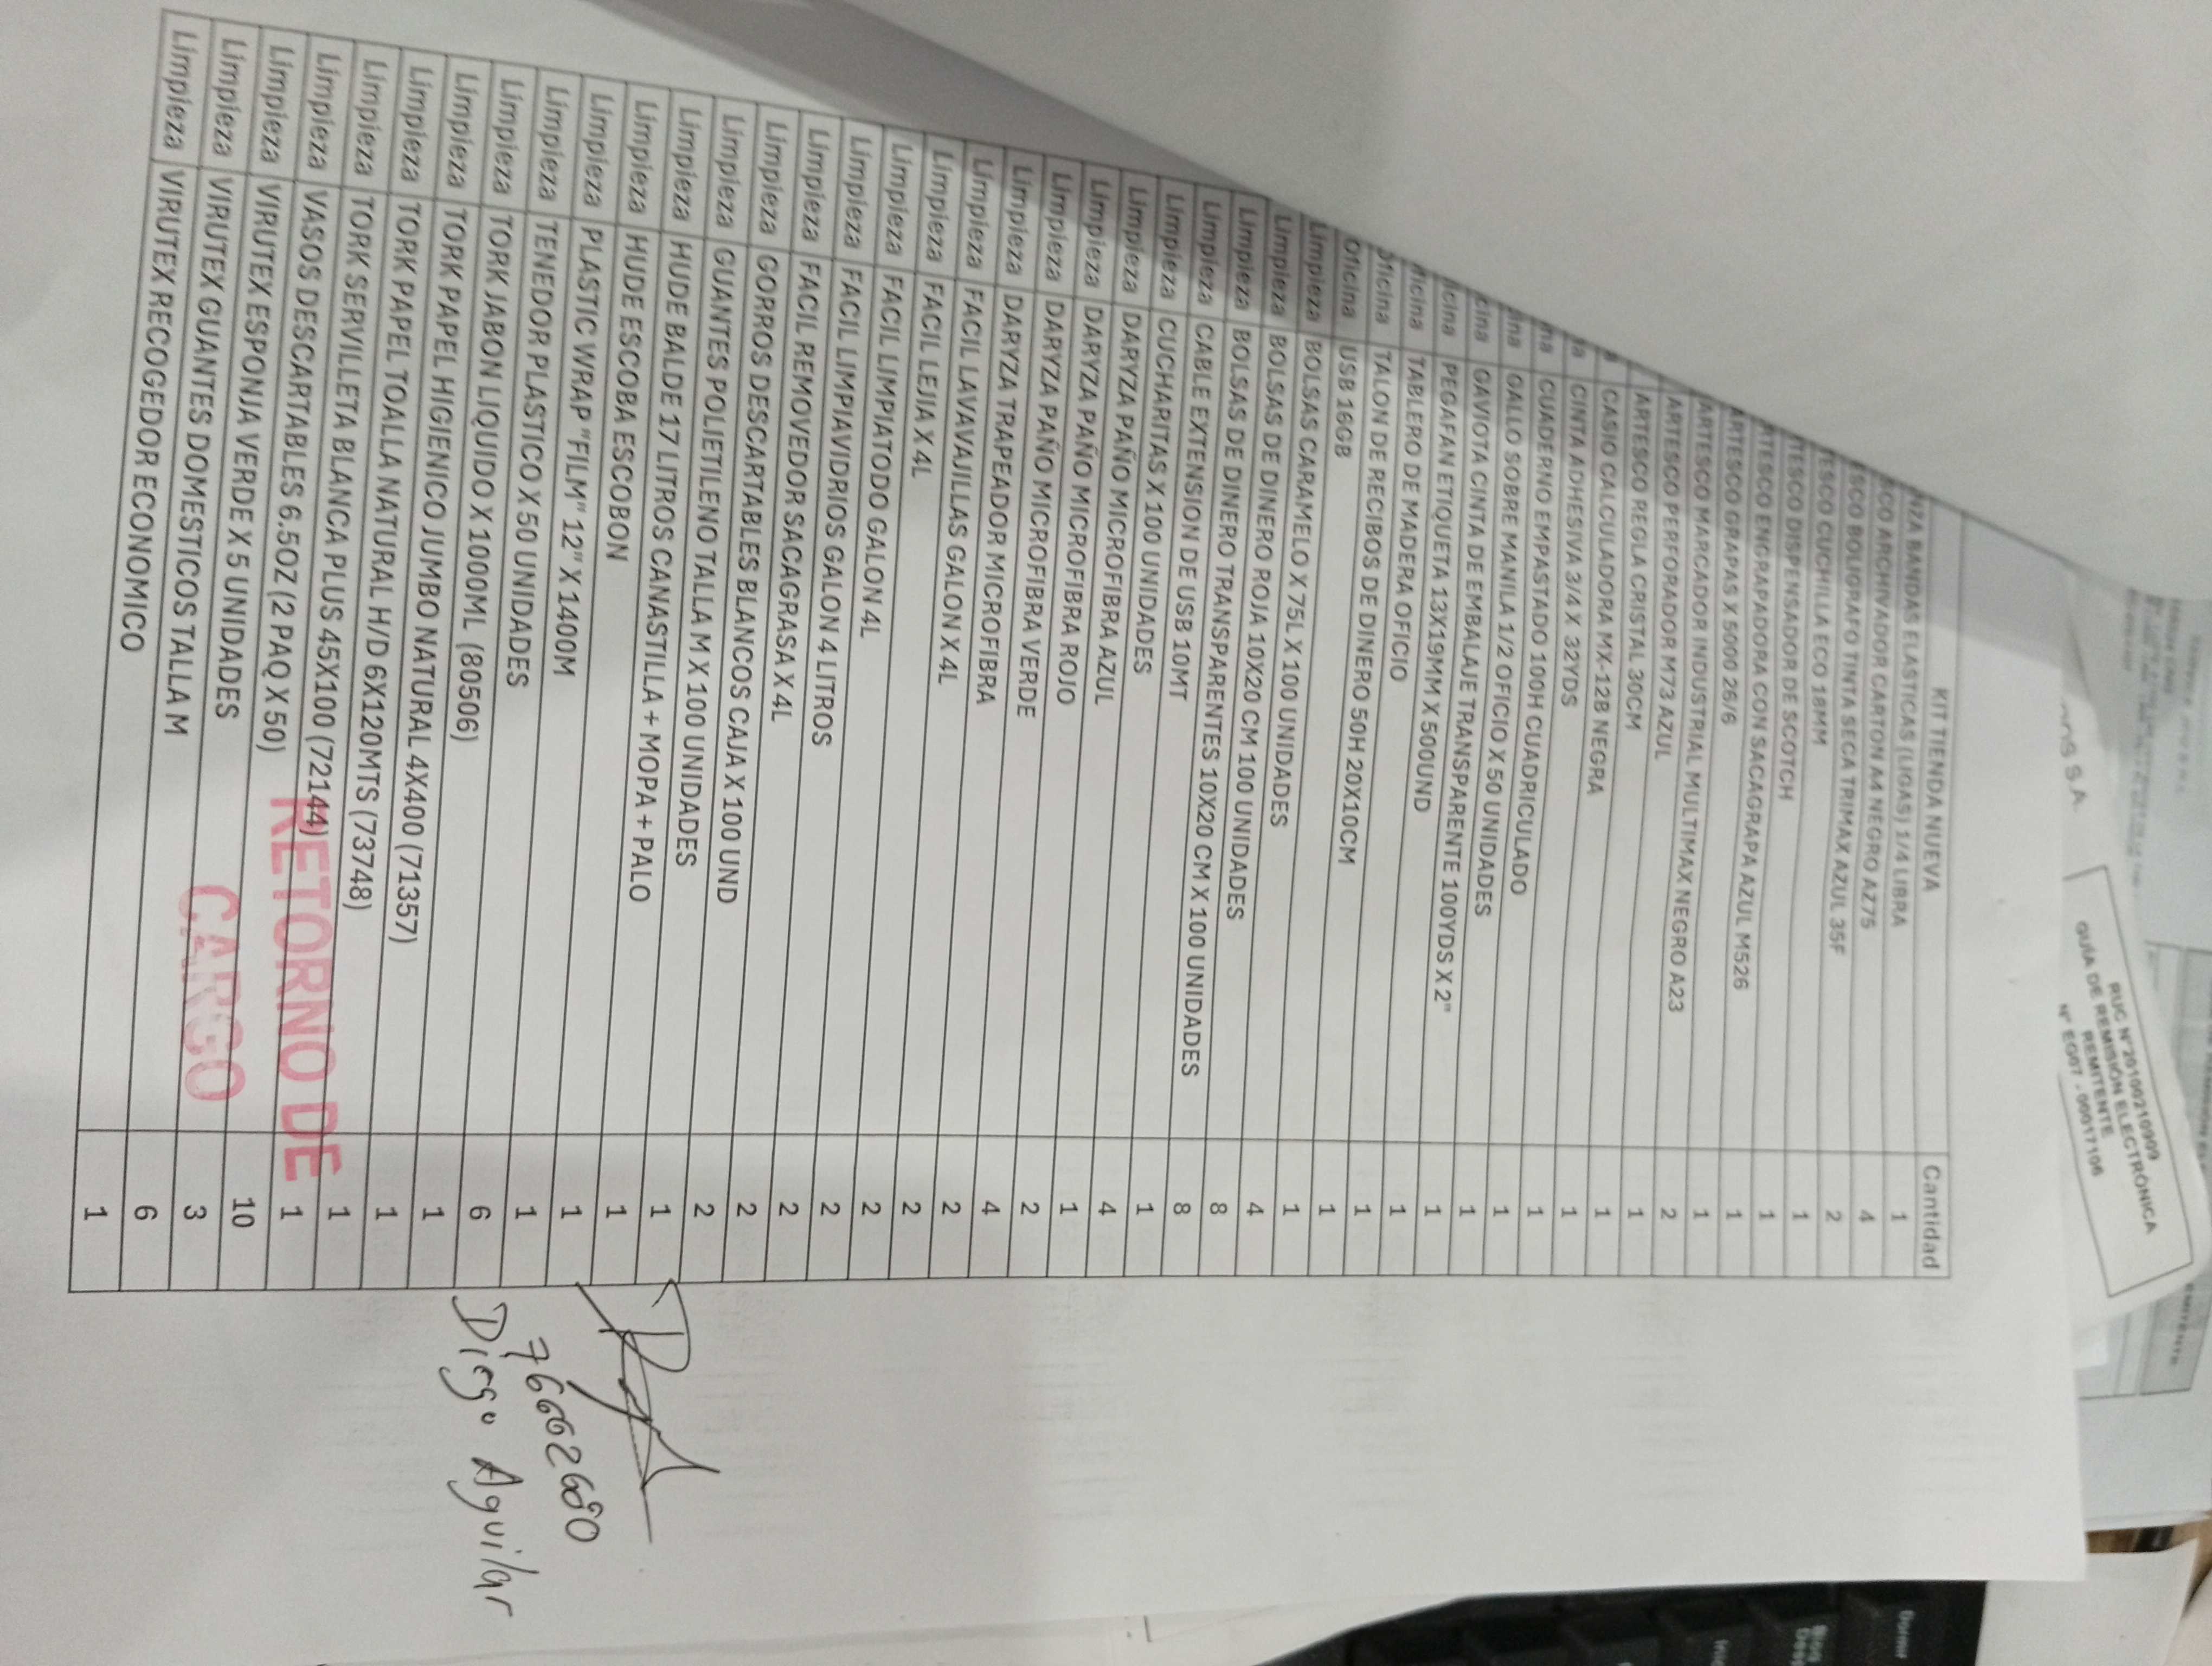 OS S.A.
RUC N°20100210909
GUÍA DE REMISIÓN ELECTRÓNICA
REMITENTE
N° EG07 - 00017106
KIT TIENDA NUEVA Cantidad
BANDAS ELASTICAS (LIGAS) 1/4 LIBRA 1
ARCHIVADOR CARTON A4 NEGRO AZ75 4
BOLIGRAFO TINTA SECA TRIMAX AZUL 35F 2
CUCHILLA ECO 18MM 1
DISPENSADOR DE SCOTCH 1
RTESCO ENGRAPADORA CON SACAGRAPA AZUL M526 1
ARTESCO GRAPAS X 5000 26/6 1
ARTESCO MARCADOR INDUSTRIAL MULTIMAX NEGRO A23 2
ARTESCO PERFORADOR M73 AZUL 1
ARTESCO REGLA CRISTAL 30CM 1
CASIO CALCULADORA MX-12B NEGRA 1
CINTA ADHESIVA 3/4 X 32YDS 1
na CUADERNO EMPASTADO 100H CUADRICULADO 1
ina GALLO SOBRE MANILA 1/2 OFICIO X 50 UNIDADES 1
cina GAVIOTA CINTA DE EMBALAJE TRANSPARENTE 100YDS X 2" 1
icina PEGAFAN ETIQUETA 13X19MM X 500UND 1
ficina TABLERO DE MADERA OFICIO 1
Oficina TALON DE RECIBOS DE DINERO 50H 20X10CM 1
Oficina USB 16GB 1
Limpieza BOLSAS CARAMELO X 75L X 100 UNIDADES 4
Limpieza BOLSAS DE DINERO ROJA 10X20 CM 100 UNIDADES 8
Limpieza BOLSAS DE DINERO TRANSPARENTES 10X20 CM X 100 UNIDADES 8
Limpieza CABLE EXTENSION DE USB 10MT 1
Limpieza CUCHARITAS X 100 UNIDADES 4
Limpieza DARYZA PAÑO MICROFIBRA AZUL 1
Limpieza DARYZA PAÑO MICROFIBRA ROJO 2
Limpieza DARYZA PAÑO MICROFIBRA VERDE 4
Limpieza DARYZA TRAPEADOR MICROFIBRA 2
Limpieza FACIL LAVAVAJILLAS GALON X 4L 2
Limpieza FACIL LEJIA X 4L 2
Limpieza FACIL LIMPIATODO GALON 4L 2
Limpieza FACIL LIMPIAVIDRIOS GALON 4 LITROS 2
Limpieza FACIL REMOVEDOR SACAGRASA X 4L 2
Limpieza GORROS DESCARTABLES BLANCOS CAJA X 100 UND 2
Limpieza GUANTES POLIETILENO TALLA M X 100 UNIDADES 1
Limpieza HUDE BALDE 17 LITROS CANASTILLA + MOPA + PALO 1
Limpieza HUDE ESCOBA ESCOBON 1
Limpieza PLASTIC WRAP "FILM" 12" X 1400M 1
Limpieza TENEDOR PLASTICO X 50 UNIDADES 6
Limpieza TORK JABON LIQUIDO X 1000ML (80506) 1
Limpieza TORK PAPEL HIGIENICO JUMBO NATURAL 4X400 (71357) 1
Limpieza TORK PAPEL TOALLA NATURAL H/D 6X120MTS (73748) 1
Limpieza TORK SERVILLETA BLANCA PLUS 45X100 (72144) 1
Limpieza VASOS DESCARTABLES 6.5OZ (2 PAQ X 50) 10
Limpieza VIRUTEX ESPONJA VERDE X 5 UNIDADES 3
Limpieza VIRUTEX GUANTES DOMESTICOS TALLA M 6
Limpieza VIRUTEX RECOGEDOR ECONOMICO 1
RETORNO DE
CARGO
76662680
Diego Aguilar